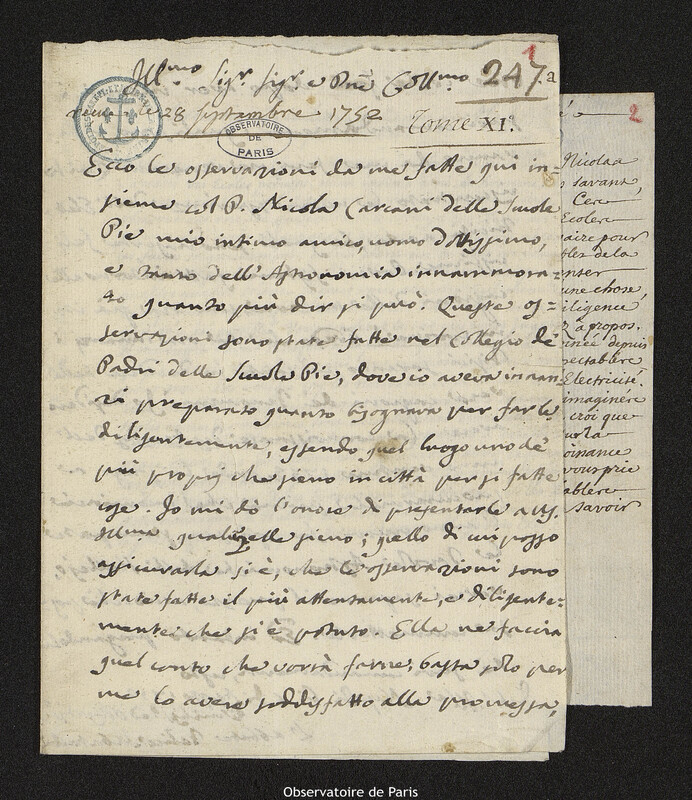 1
247.a
Ill.mo Sig.r Sig.r e Pne Coll.mo
reçue le 28 septembre 1752
Tome XI.e
OBSERVATOIRE
DE
PARIS
Ecco le osservazioni da me fatte qui in=
sieme col P. Nicola Carcani delle Scuole
Pie mio intimo amico, uomo dottissimo,
e tanto dell'Astronomia innammora=
to quanto più dir si può. Queste os=
servazioni sono state fatte nel Collegio de'
Padri delle Scuole Pie, dove io aveva innan=
zi preparato quanto bisognava per farle
diligentemente, essendo quel luogo uno de'
più proprj che sieno in città per sì fatte
cose. Io mi dò l'onore di presentarle a VS.
Illma qualunque elle sieno; quello di cui posso
assicurarla si è, che le osservazioni sono
state fatte il più attentamente, e diligente=
mente che si è potuto. Ella ne faccia
quel conto che vorrà farne, basta solo per
me lo avere soddisfatto alla promessa,
2
Nicolaa
savant,
Cere
Ecolere
aire pour
bler de la
enter
une chose,
iligence
à propos.
inée depuis
pectablere
Electricité.
imaginere
croi que
sur la
oissance
vous prie
ablere
savoir
Observatoire de Paris